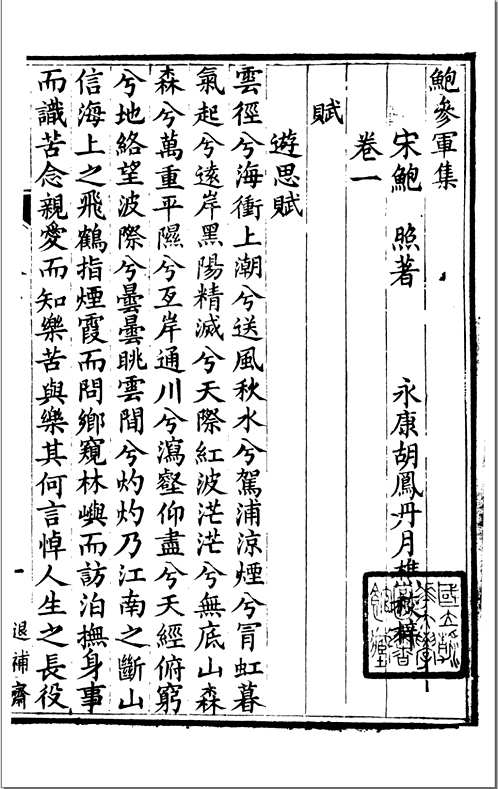 鮑參軍集
宋鮑 照著 永康胡鳳丹月樵校梓
卷一
賦
遊思賦
雲徑兮海衝上潮兮送風秋水兮駕浦涼煙兮冐虹暮
氣起兮遠岸黑陽精滅兮天際紅波茫茫兮無底山森
森兮萬重平隰兮亙岸通川兮瀉壑仰盡兮天經俯窮
兮地絡望波際兮曇曇眺雲間兮灼灼乃江南之斷山
信海上之飛鶴指煙霞而問鄉窺林嶼而訪泊撫身事
而識苦念親愛而知樂苦與樂其何言悼人生之長役
退補齋